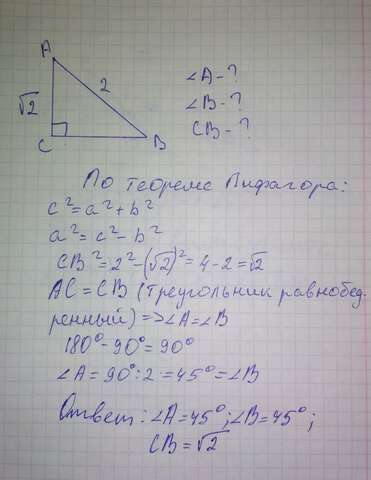 A
√2
2
C
B
∠A - ?
∠B - ?
CB - ?
По теореме Пифагора:
c² = a² + b²
a² = c² - b²
CB² = 2² - (√2)² = 4 - 2 = √2
AC = CB (треугольник равнобед-
ренный) => ∠A = ∠B
180° - 90° = 90°
∠A = 90° : 2 = 45° = ∠B
Ответ: ∠A = 45°; ∠B = 45°;
CB = √2